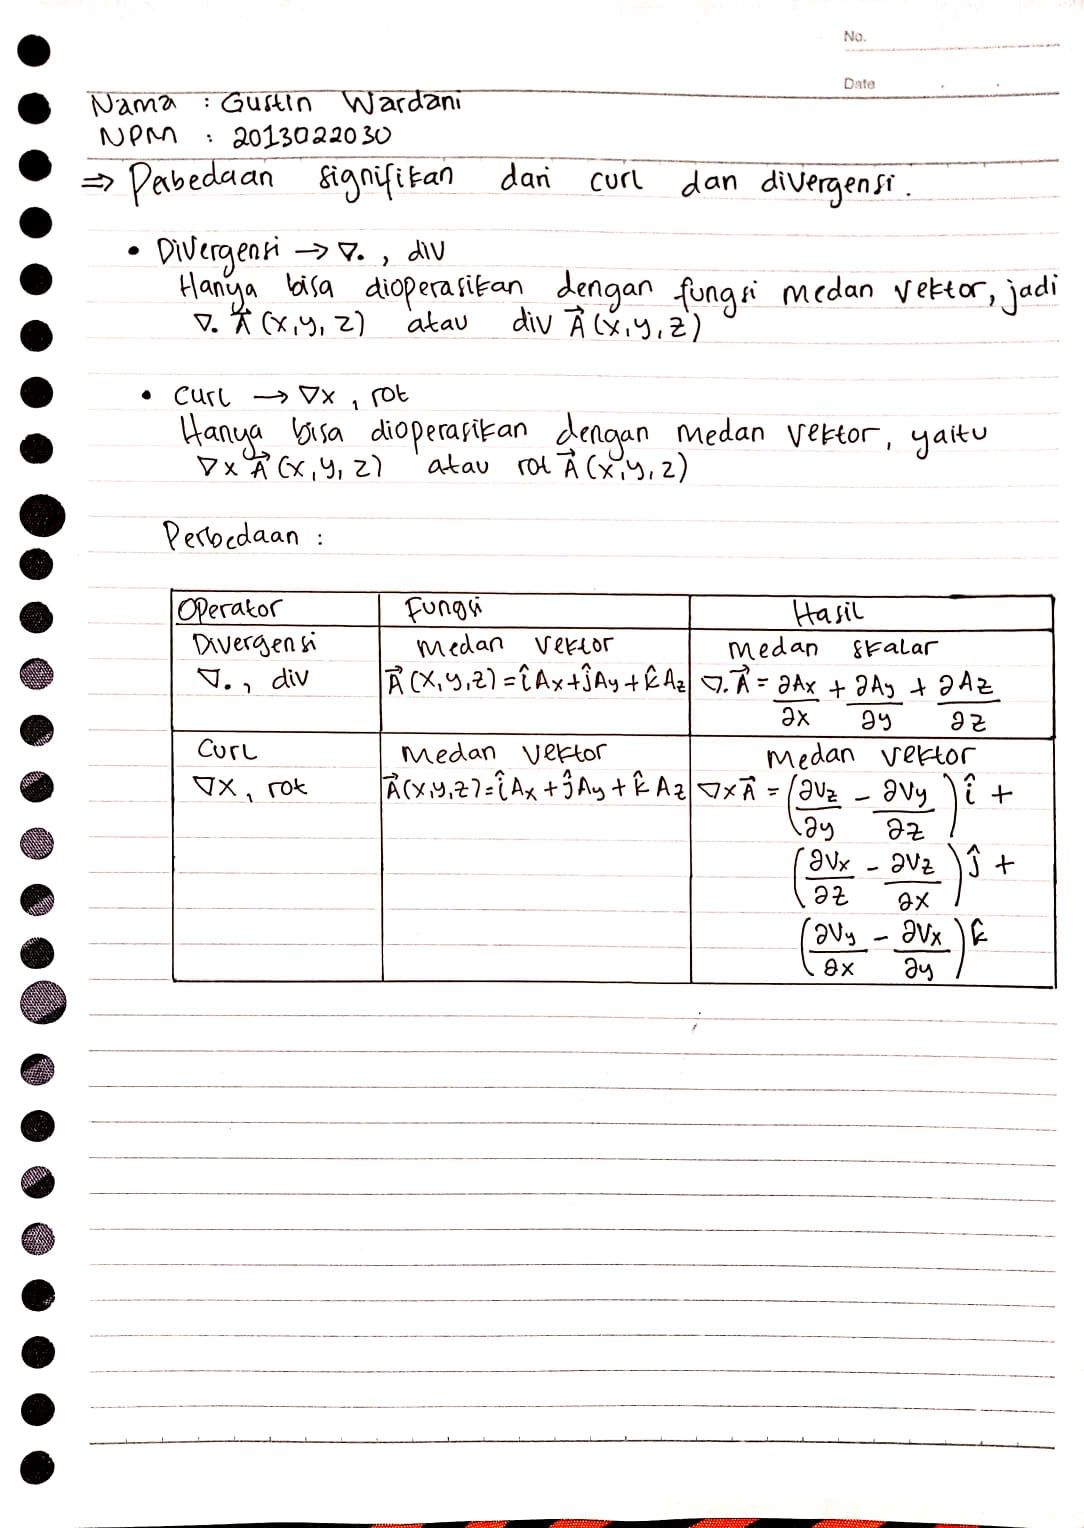 No.
Date
Nama : Gustin Wardani
NPM : 2013022030
⇒ Perbedaan signifikan dari curl dan divergensi.
• Divergensi → ∇. , div
Hanya bisa dioperasikan dengan fungsi medan vektor, jadi
∇. A⃗ (x,y,z) atau div A⃗ (x,y,z)
• Curl → ∇x , rot
Hanya bisa dioperasikan dengan medan vektor, yaitu
∇x A⃗ (x,y,z) atau rot A⃗ (x,y,z)
Perbedaan :
Operator Fungsi Hasil
Divergensi medan vektor medan skalar
∇. , div A⃗ (x,y,z) = îAx + ĵAy + k̂Az ∇. A⃗ = ∂Ax/∂x + ∂Ay/∂y + ∂Az/∂z
Curl Medan vektor Medan vektor
∇x, rot A⃗(x,y,z) = îAx + ĵAy + k̂Az ∇xA⃗ = (∂Vz/∂y - ∂Vy/∂z) î +
(∂Vx/∂z - ∂Vz/∂x) ĵ +
(∂Vy/∂x - ∂Vx/∂y) k̂